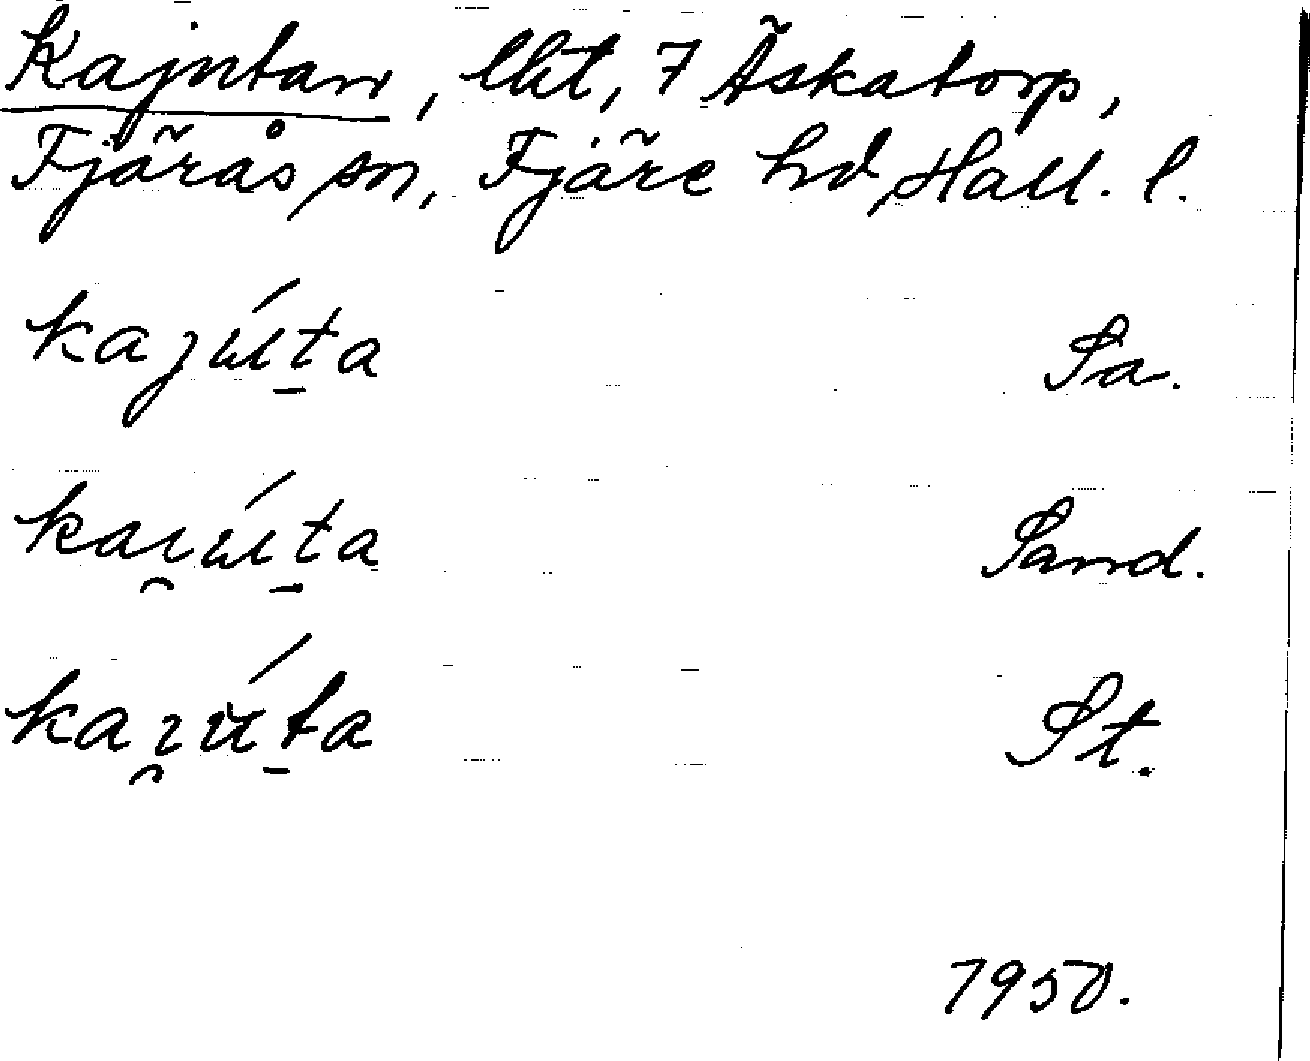 Kajutan, lht, 7 Äskatorp,
Fjärås sn, Fjäre hd, Hall. l.
kajúta Sa.
kaı̯úta Sand.
kaı̯úta St.
1950.